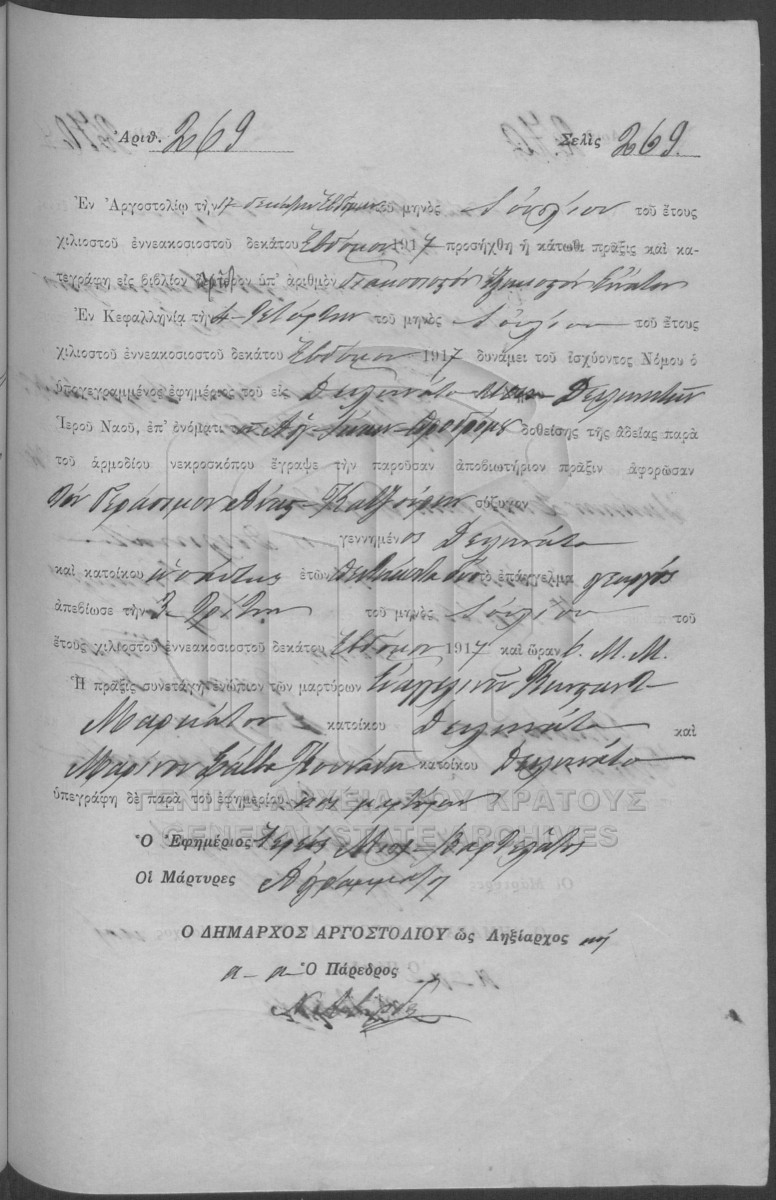 Ἀριθ. 269 Σελὶς 269.
Ἐν Ἀργοστολίῳ τὴν 17 δεκάτην Ἑβδόμην τοῦ μηνὸς Ἰουλίου τοῦ ἔτους
χιλιοστοῦ ἐννεακοσιοστοῦ δεκάτου Ἑβδόμου 1917 προσήχθη ἡ κάτωθι πρᾶξις καὶ κα-
τεγράφη εἰς βιβλίον ὑπ' ἀριθμὸν διακοσιοστὸν ἑξηκοστὸν ἔνατον
Ἐν Κεφαλληνίᾳ τὴν 4 Τετάρτην τοῦ μηνὸς Ἰουλίου τοῦ ἔτους
χιλιοστοῦ ἐννεακοσιοστοῦ δεκάτου Ἑβδόμου 1917 δυνάμει τοῦ ἰσχύοντος Νόμου ὁ
ὑπογεγραμμένος ἐφημέριος τοῦ εἰς Δειλινάτα
Ἱεροῦ Ναοῦ, ἐπ' ὀνόματι Ἁγ. Ἰωάν. Προδρόμου δοθείσης τῆς ἀδείας παρὰ
τοῦ ἁρμοδίου νεκροσκόπου ἔγραψε τὴν παροῦσαν ἀποβιωτήριον πρᾶξιν ἀφορῶσαν
τὸν Γεράσιμον σύζυγον
γεννημένος Δειλινάτα
καὶ κατοίκου ἐτῶν τὸ ἐπάγγελμα γεωργὸς
ἀπεβίωσε τὴν 3 Τρίτην τοῦ μηνὸς Ἰουλίου τοῦ
ἔτους χιλιοστοῦ ἐννεακοσιοστοῦ δεκάτου Ἑβδόμου 1917 καὶ ὥραν 6. Μ. Μ.
Ἡ πρᾶξις συνετάγη ἐνώπιον τῶν μαρτύρων Εὐαγγελινοῦ
Μαρκάτου κατοίκου Δειλινάτα καὶ
Μαρίνου κατοίκου Δειλινάτα
ὑπεγράφη δὲ παρὰ τοῦ ἐφημερίου καὶ μαρτύρων
ΓΕΝΙΚΑ ΑΡΧΕΙΑ ΤΟΥ ΚΡΑΤΟΥΣ
GENERAL STATE ARCHIVES
Ὁ Ἐφημέριος Ἱερεὺς
Οἱ Μάρτυρες Ἀγράμματοι
Ο ΔΗΜΑΡΧΟΣ ΑΡΓΟΣΤΟΛΙΟΥ ὡς Ληξίαρχος
α – α Ὁ Πάρεδρος